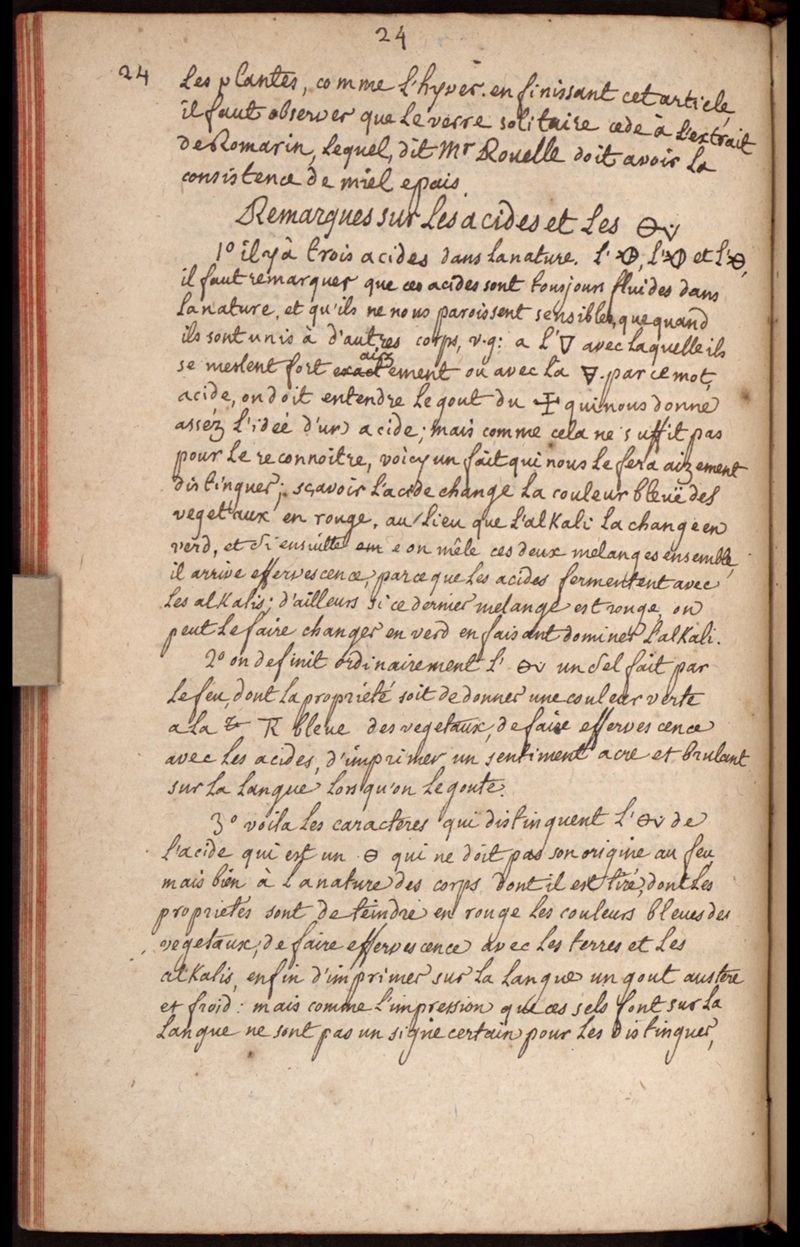 24
24
Les plantes, comme l'hyver. en finissant cet article
il faut observer que le verre solitaire cede à l'extrait
de Romarin, lequel, dit Mr Rouelle doit avoir la
consistence de miel epais.
Remarques sur les acides et les 🜔v
1º il y à trois acides dans la nature. L' L' et L'
il faut remarquer que ces acides sont tousjours fluides dans
la nature, et qu'ils ne nous paroissent sensibles, que quand
ils sont unis à d'autres corps, v.g: a l'🜄 avec laquelle ils
se meslent fort exactement ou avec la 🜃. par ce mot
acide, on doit entendre le gout du 🜊 qui nous donne
assez l'ideé d'un acide; mais comme cela ne suffit pas
pour le reconnoitre, voicy un fait qui nous le fera aizement
distinguer; sçavoir l'acide change la couleur bleuë des
vegetaux en rouge, au lieu que l'alkali la change en
verd, et si ensuitte on mêle ces deux melanges ensemble,
il arrive effervescence, parce que les acides fermentent avec
les alkalis; d'ailleurs si ce dernier melange est rouge, on
peut le faire changer en verd en faisant dominer l'alkali.
2º on definit ordinairement l' 🜔v un sel fait par
le feu, dont la proprieté soit de donner une couleur verte
a la bleue des vegetaux, de faire effervescence
avec les acides, d'imprimer un sentiment acre et brulant
sur la langue lorsqu'on le goute.
3º voila les caracteres qui distinguent l' 🜔v de
l'acide qui est un 🜔 qui ne doit pas son origine au feu
mais bien à la nature des corps dont il est tiré, dont les
proprietés sont de teindre en rouge les couleurs bleues des
vegetaux; de faire effervescence avec les terres et les
alkalis, enfin d'imprimer sur la langue un gout austere
et froid: mais comme l'impression que ces sels font sur la
langue ne sont pas un signe certain pour les distinguer,